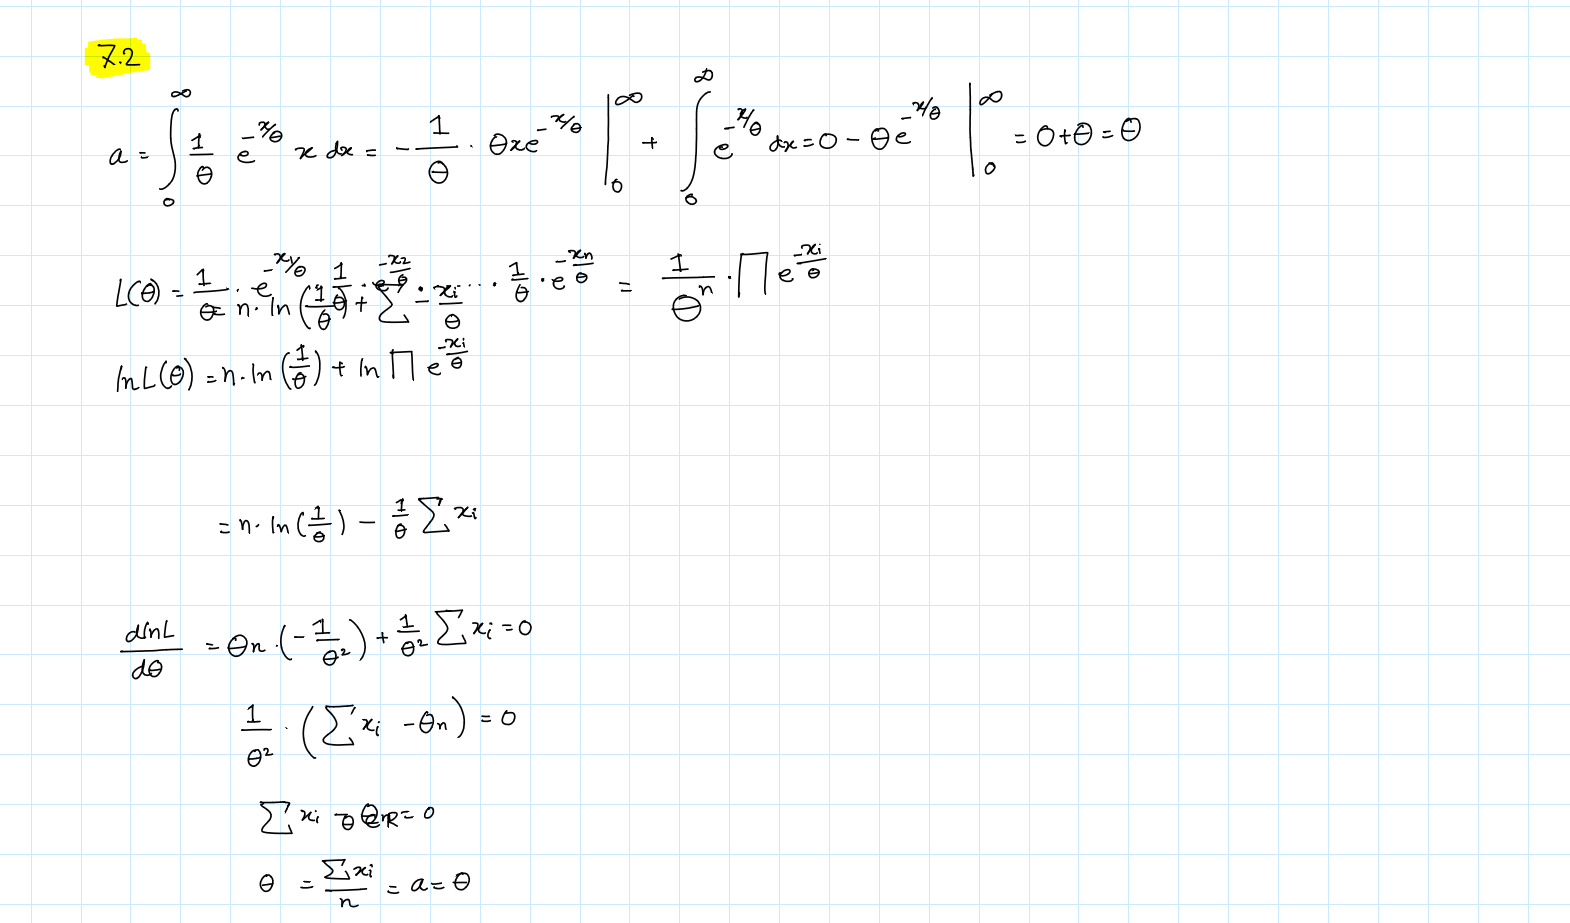 7.2
a = ∫₀^∞ 1/θ e^(-x/θ) x dx = - 1/θ · θxe^(-x/θ) |₀^∞ + ∫₀^∞ e^(-x/θ) dx = 0 - θe^(-x/θ) |₀^∞ = 0+θ = θ
L(θ) = 1/θ · e^(-x₁/θ) · 1/θ · e^(-x₂/θ) · ... · 1/θ · e^(-xₙ/θ) = 1/θⁿ · ∏ e^(-xᵢ/θ)
= n · ln(1/θ) + ∑ - xᵢ/θ
lnL(θ) = n · ln(1/θ) + ln ∏ e^(-xᵢ/θ)
= n · ln(1/θ) - 1/θ ∑ xᵢ
dlnL/dθ = θn · (- 1/θ²) + 1/θ² ∑ xᵢ = 0
1/θ² · (∑ xᵢ - θn) = 0
∑ xᵢ = 0
θ = ∑xᵢ/n = a = θ